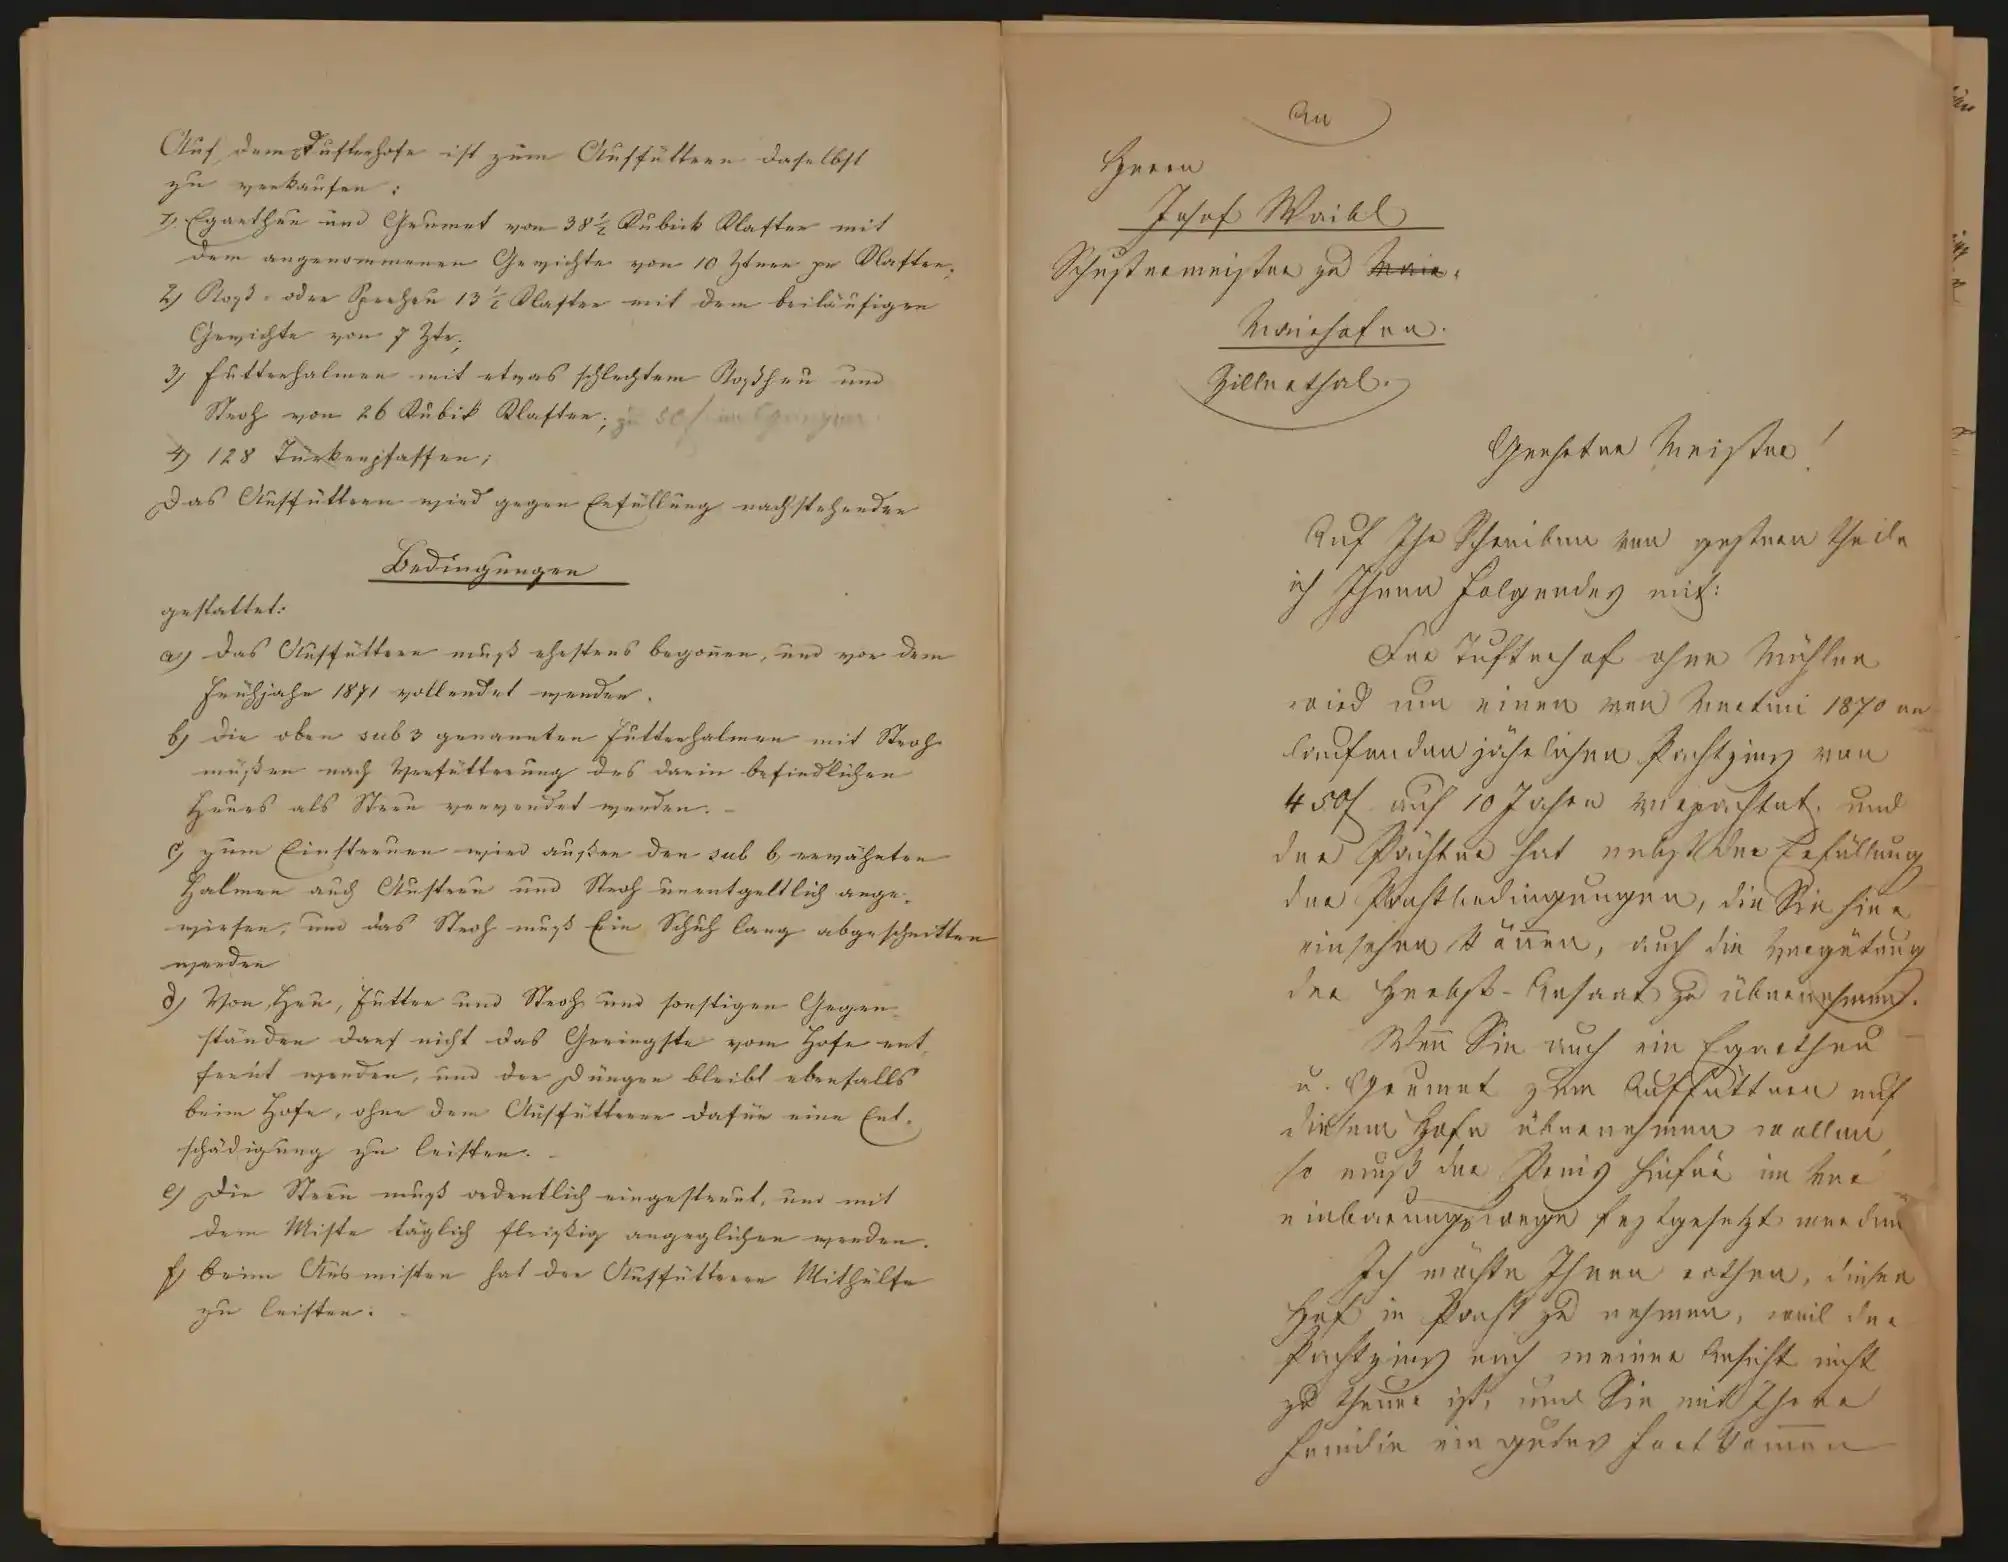 Auf dem Tufterhofe ist zum Ausfüttern daselbst
zu verkaufen:
1) Egartheu und Grumet von 38 1/2 Kubick Klafter mit
dem angenommenen Gewichte von 10 Ztnrn pr Klafter;
2) Roß- oder Spreheu 13 1/2 Klafter mit dem beiläufigen
Gewichte von 7 Ztr;
3) Futterhalmen mit etwas schlechtem Roßheu und
Stroh von 26 Kubik Klafter; zu 50 f im
4) 128 Türkenpfaffen;
Das Ausfüttern wird gegen Erfüllung nachstehender
Bedingungen
gestattet:
a) Das Ausfüttern muß ehestens begoñen, und vor dem
Frühjahr 1871 vollendet werden.
b) Die oben sub 3 genannten Futterhalmen mit Stroh
müßen nach Verfütterung des darin befindlichen
Heues als Streu verwendet werden. –
c) zum Einstreuen wird außer den sub b, erwähnten
Halmen auch Austreu und Stroh unentgeltlich ange-
wiesen, und das Stroh muß Ein Schuh lang abgeschnitten
werden
d) Von Heu, Futter und Stroh und sonstigen Gegen-
ständen darf nicht das Geringste vom Hofe ent-
fernt werden, und der Dünger bleibt ebenfalls
beim Hofe, ohne dem Ausfütterer dafür eine Ent-
schädigung zu leisten. –
e) Die Streu muß ordentlich eingestreut, und mit
dem Miste täglich fleißig angeglichen werden.
f) beim Ausmisten hat der Ausfütterer Mithülfe
zu leisten. –
An
Herrn
Josef Waibl
Schustermeister zu Mair-
Mairhofen.
Zillerthal.
Geehrter Meister!
Auf Ihr Schreiben von gestern theile
ich Ihnen Folgendes mit:
Der Tufterhof ohne Mühle
wird um einen von Martini 1870 an
laufenden jährlichen Pachtzins von
450f auf 10 Jahre verpachtet, und
der Pächter hat nebst der Erfüllung
der Pachtbedingungen, die Sie hier
einsehen köñen, auch die Vergütung
der Herbst-Ansaat zu übernehmen.
Weñ Sie auch ein Egartheu
u. Grumet zum Ausfüttern auf
diesem Hofe übernehmen wollen,
so muß der Preis hiefür im Ver
einbarungswege festgesetzt werden
Ich möchte Ihnen rathen, diesen
Hof in Pacht zu nehmen, weil der
Pachtzins nach meiner Ansicht nicht
zu theuer ist, und Sie mit Ihrer
Familie ein gutes Fortkom̃en